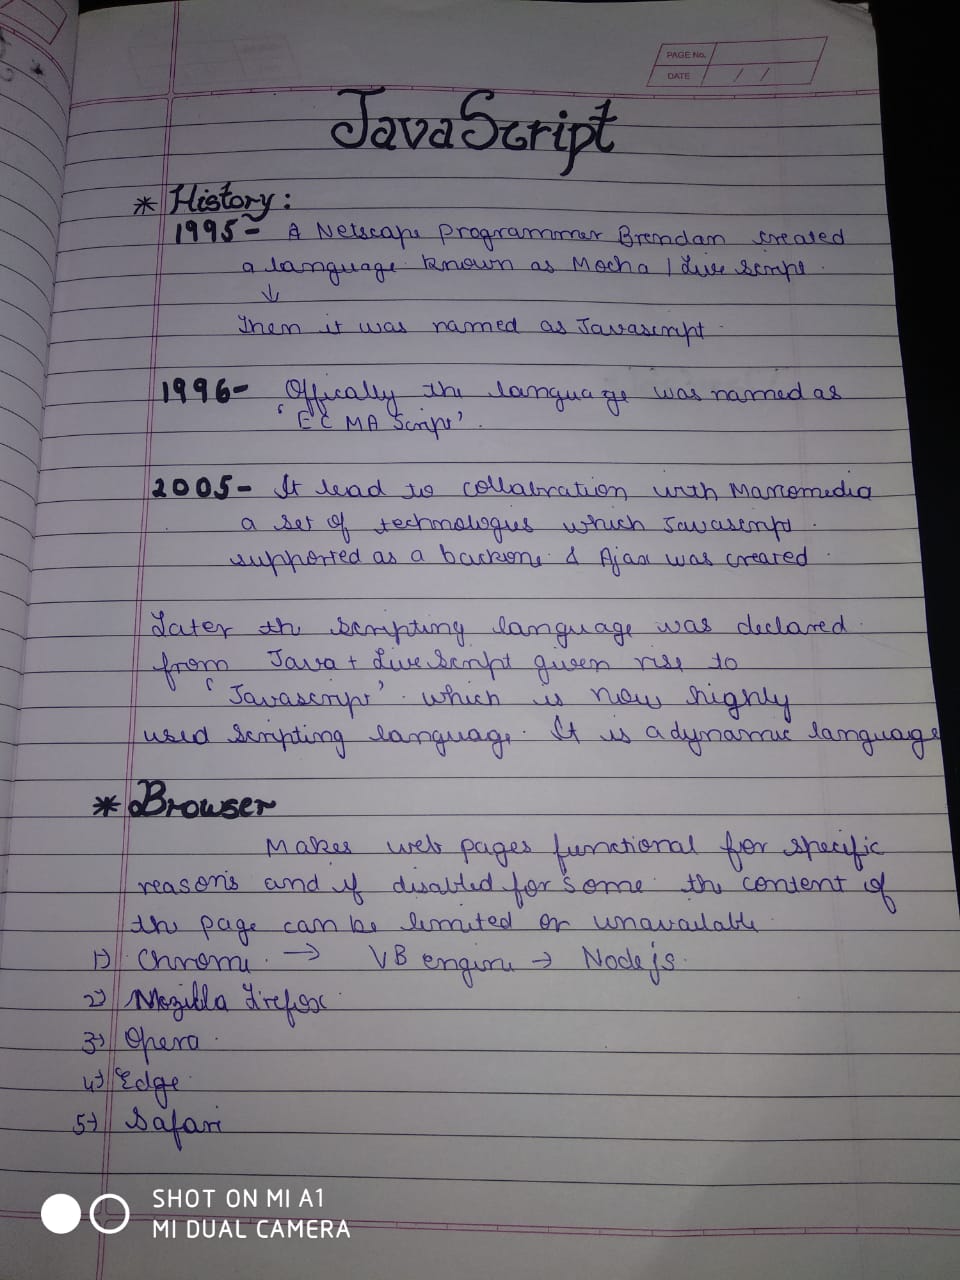 PAGE No.
DATE / /
JavaScript
* History:
1995- A Netscape programmer Brendan created
a language known as Mocha / Live Script.
↓
Then it was named as Javascript.
1996- Offically the language was named as
'ECMA Script'.
2005- It lead to collabration with Macromedia
a set of technologies which Javascript.
supported as a backone & Ajax was created.
Later the scripting language was declared.
from Java + Live Script given rise to
'Javascript' which is now highly
used scripting language. It is a dynamic language
* Browser
Makes web pages functional for specific
reasons and if disabled for some the content of
the page can be limited or unavailable
1) Chrome. → V8 engine → Nodejs.
2) Mozilla Firefox.
3) Opera.
4) Edge.
5) Safari
SHOT ON MI A1
MI DUAL CAMERA